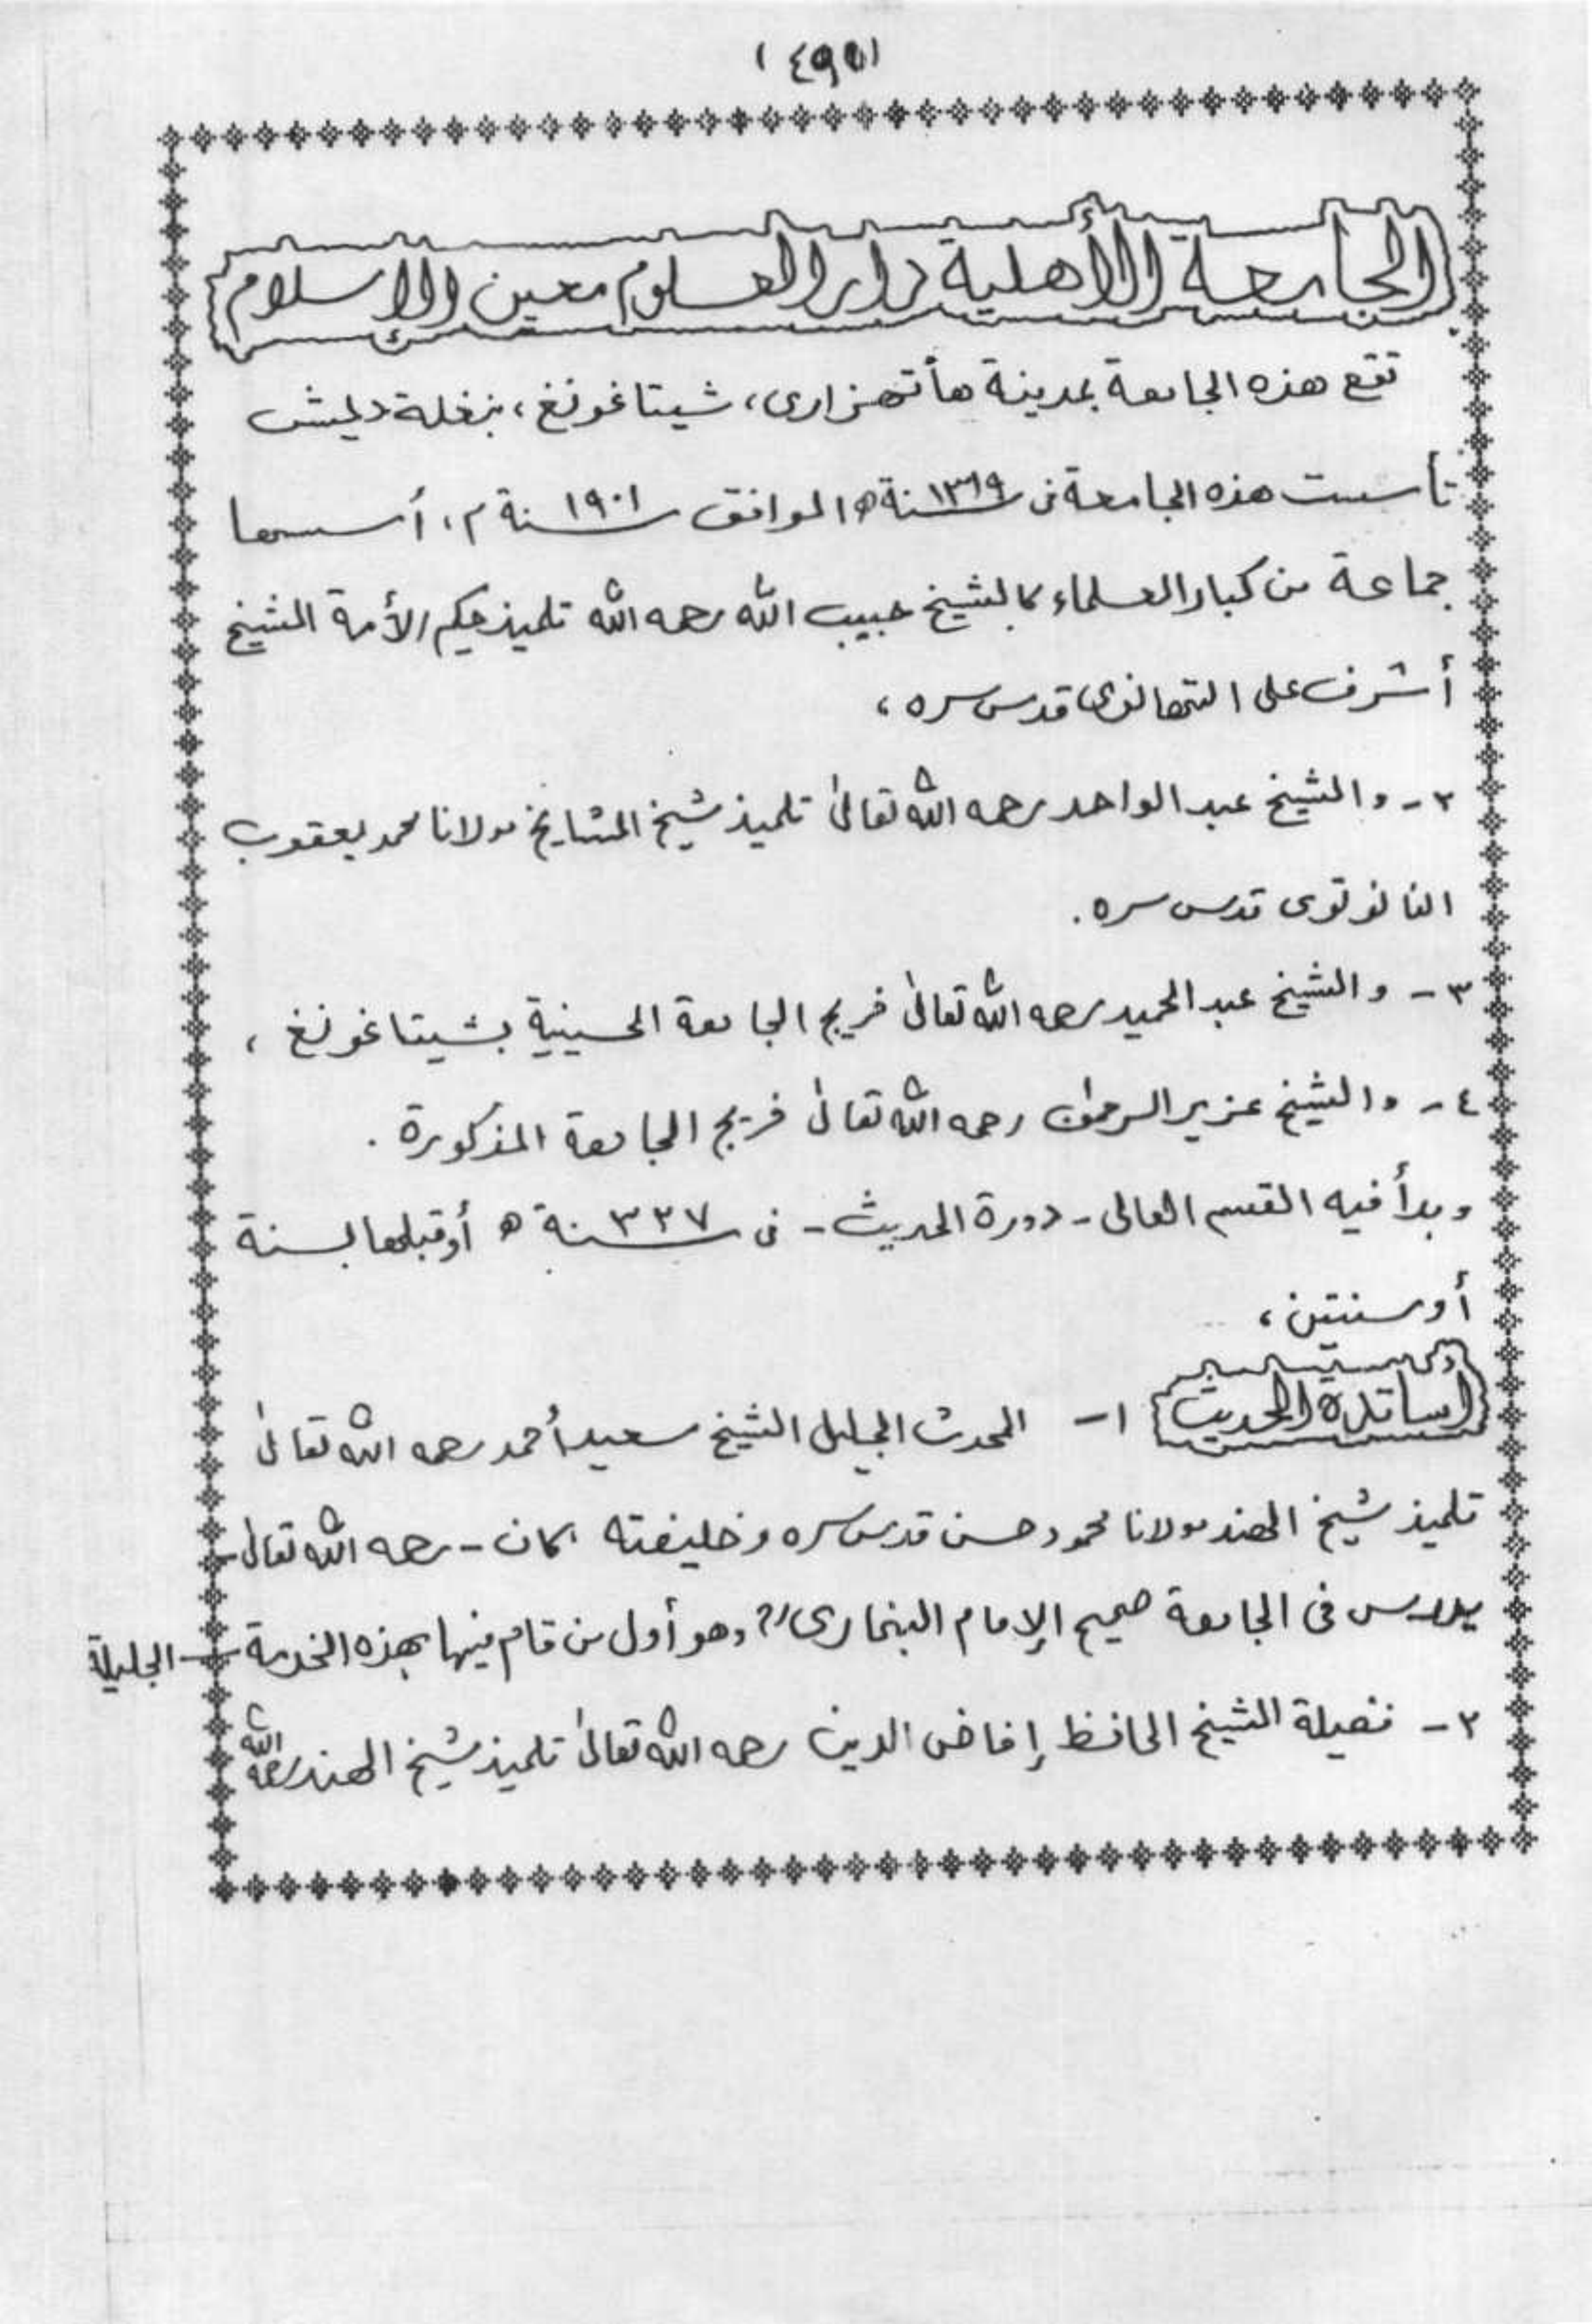 (٤٩٥)
الجامعة الأهلية دار العلوم معين الإسلام
تقع هذه الجامعة بمدينة هأتهزارى، شيتاغونغ، بنغلة ديش
تأسست هذه الجامعة فى سنة ١٣١٩ھ الموافق سنة ١٩٠١ م، أسسها
جماعة من كبار العلماء كالشيخ حبيب الله رحمه الله تلميذ حكيم الأمة الشيخ
أشرف على التهانوى قدس سره،
٢- والشيخ عبد الواحد رحمه الله تعالىٰ تلميذ شيخ المشايخ مولانا محمد يعقوب
النانوتوى قدس سره.
٣- والشيخ عبد الحميد رحمه الله تعالىٰ خريج الجامعة الحسينية بشيتاغونغ،
٤- والشيخ عزيز الرحمٰن رحمه الله تعالىٰ خريج الجامعة المذكورة.
وبدأ فيه القسم العالى - دورة الحديث - فى سنة ٣٢٧ ھ أو قبلها بسنة
أو سنتين،
أساتذة الحديث ١- المحدث الجليل الشيخ سعيد أحمد رحمه الله تعالىٰ
تلميذ شيخ الهند مولانا محمود حسن قدس سره وخليفته كان - رحمه الله تعالىٰ -
يدرس فى الجامعة صحيح الإمام البخارى وهو أول من قام فيها بهذه الخدمة الجليلة
٢- فضيلة الشيخ الحافظ إفاض الدين رحمه الله تعالىٰ تلميذ شيخ الهند رحمه الله